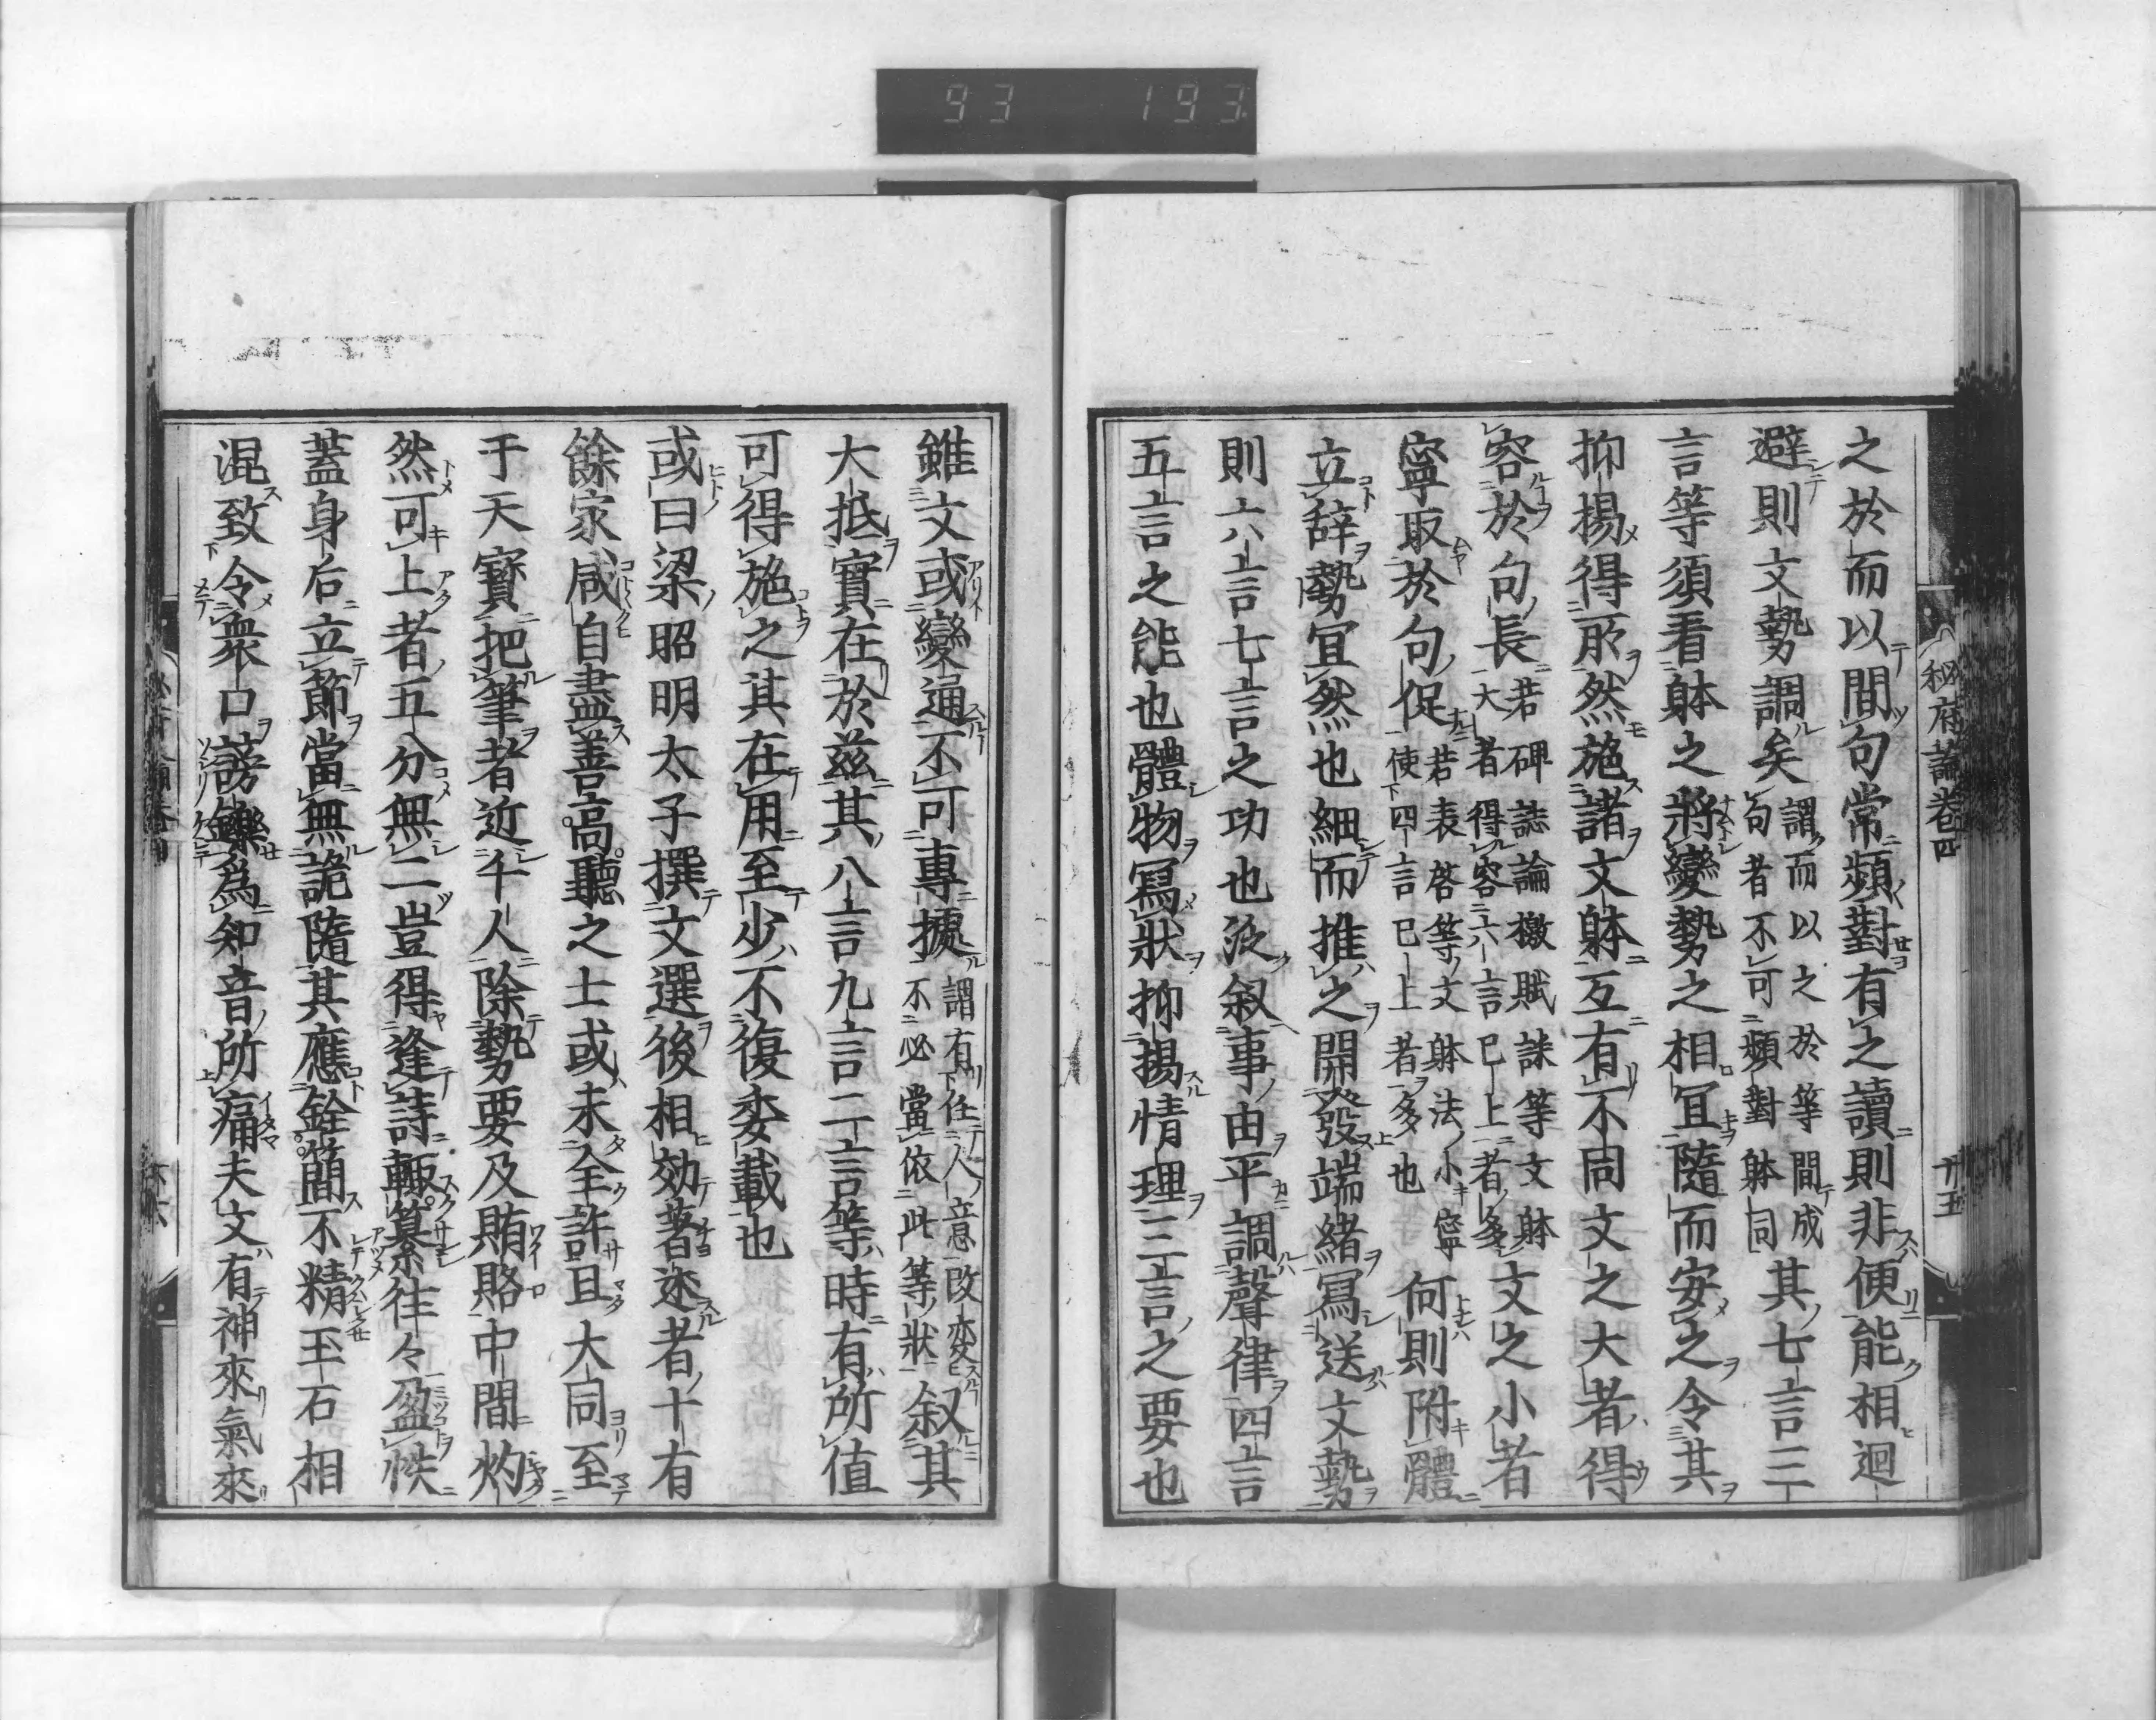 93 193
秘府論卷四
之於而以間句常頻對有之讀則非便能相迴
避則文勢調矣謂而以之於等間成句者不可頻對躰同其七言三
言等須看躰之將變勢之相宜隨而安之令其
抑揚得所然施諸文躰互有不同文之大者得
容於句長若碑誌論檄賦誄等文躰大者得容六言已上者多文之小者
寧取於句促若表啓等文躰法小寧使四言已上者多也何則附體
立辞勢宜然也細而推之開發端緒寫送文勢
則六言七言之功也泛叙事由平調聲律四言
五言之能也體物寫狀抑揚情理三言之要也
雖文或變通不可專據謂有任人意改变不必當依此等狀叙其
大抵實在於茲其八言九言二言等時有所值
可得施之其在用至少不復委載也
或曰梁昭明太子撰文選後相効著述者十有
餘家咸自盡善高聽之士或未全許且大同至
于天寶把筆者近千人除勢要及賄賂中間灼
然可上者五分無二豈得逢詩輙纂往々盈帙
蓋身后立節當無詭隨其應銓簡不精玉石相
混致令衆口謗鑠爲知音所痛夫文有神來氣來